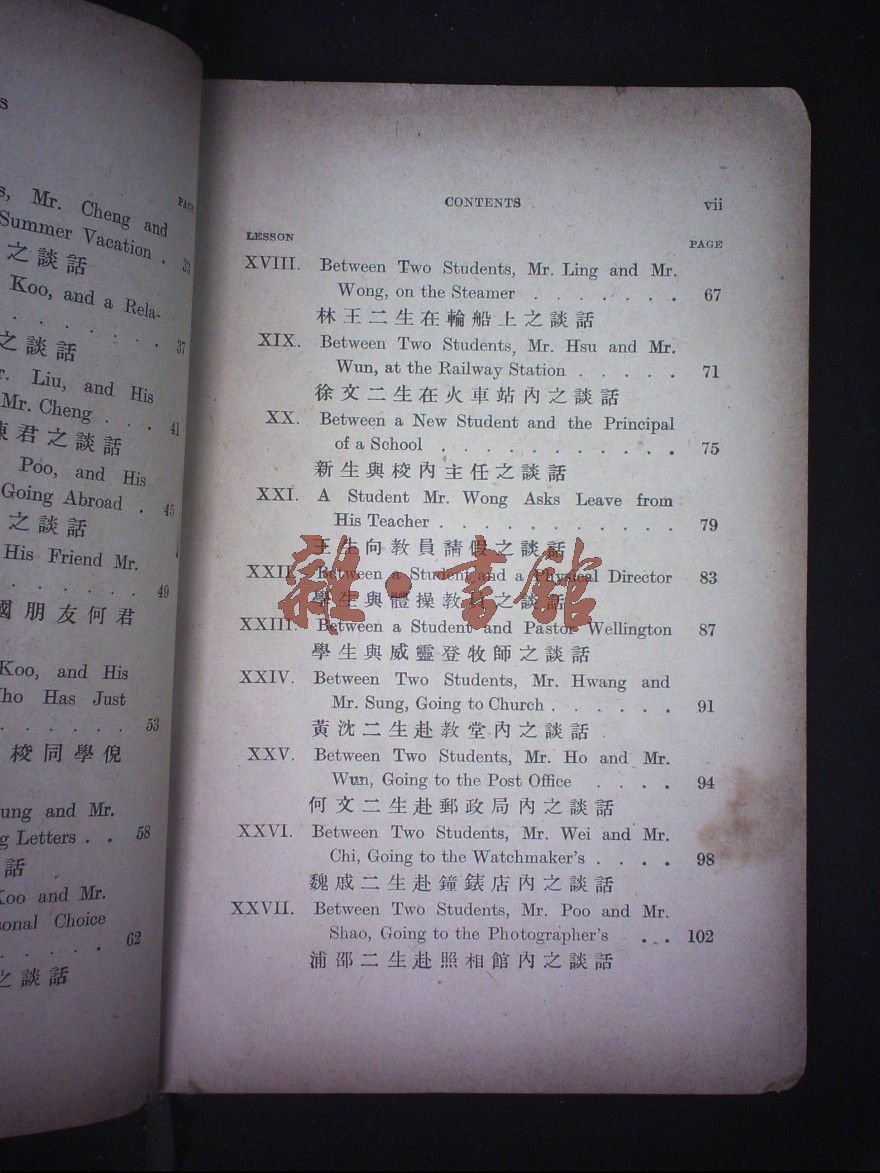 s
PAGE
s, Mr. Cheng and
Summer Vacation . 33
之談話
Koo, and a Rela-
. . . . . . . 37
之談話
r. Liu, and His
Mr. Cheng . . . 41
君之談話
Poo, and His
Going Abroad . 45
之談話
His Friend Mr.
. . . . . . 49
國朋友何君
Koo, and His
ho Has Just
. . . . . . 53
校同學倪
ung and Mr.
g Letters . . 58
話
Koo and Mr.
sonal Choice
. . . . . . 62
之談話
CONTENTS vii
LESSON PAGE
XVIII. Between Two Students, Mr. Ling and Mr.
Wong, on the Steamer . . . . . . . 67
林王二生在輪船上之談話
XIX. Between Two Students, Mr. Hsu and Mr.
Wun, at the Railway Station . . . . . 71
徐文二生在火車站內之談話
XX. Between a New Student and the Principal
of a School . . . . . . . . . . . 75
新生與校內主任之談話
XXI. A Student Mr. Wong Asks Leave from
His Teacher . . . . . . . . . . . 79
王生向教員請假之談話
XXII. Between a Student and a Physical Director 83
學生與體操教員之談話
XXIII. Between a Student and Pastor Wellington 87
學生與威靈登牧師之談話
XXIV. Between Two Students, Mr. Hwang and
Mr. Sung, Going to Church . . . . . . 91
黃沈二生赴教堂內之談話
XXV. Between Two Students, Mr. Ho and Mr.
Wun, Going to the Post Office . . . . 94
何文二生赴郵政局內之談話
XXVI. Between Two Students, Mr. Wei and Mr.
Chi, Going to the Watchmaker's . . . . 98
魏戚二生赴鐘錶店內之談話
XXVII. Between Two Students, Mr. Poo and Mr.
Shao, Going to the Photographer's . . . 102
浦邵二生赴照相館內之談話
雜·書館